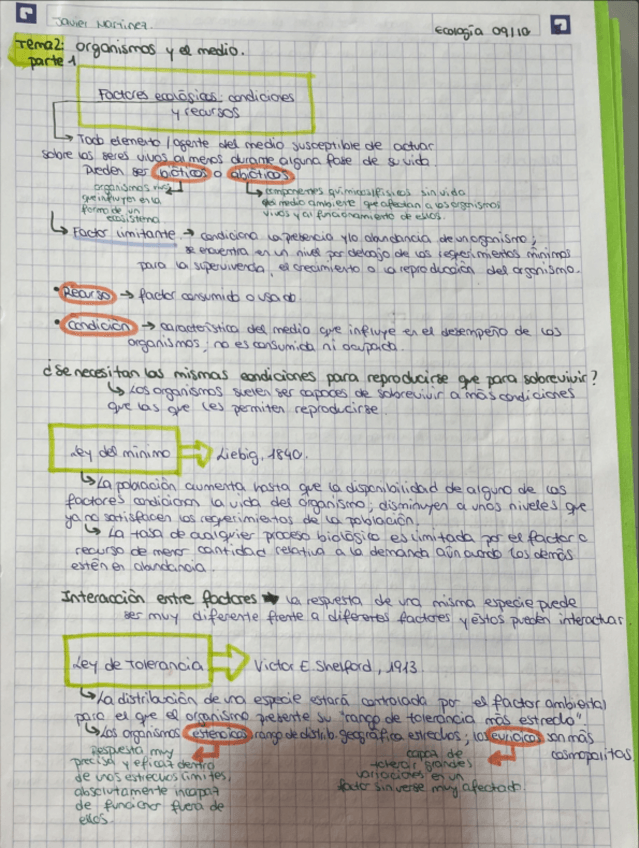 Javier Martinez.
Ecología 09/10
Tema 2: organismos y el medio.
parte 1
Factores ecológicos: condiciones
y recursos
↳ Todo elemento/agente del medio susceptible de actuar
sobre los seres vivos al menos durante alguna fase de su vida.
Pueden ser bióticos o abióticos
organismos
que influyen en la
forma de un
ecosistema
↳ componentes químicos/físicos sin vida
del medio ambiente que afectan a los organismos
vivos y al funcionamiento de ellos.
↳ Factor limitante → condiciona la presencia y/o abundancia de un organismo;
se encuentra en un nivel por debajo de los requerimientos mínimos
para la supervivencia, el crecimiento o la reproducción del organismo.
• Recurso → factor consumido o usado
• Condición → característica del medio que influye en el desempeño de los
organismos; no es consumida ni ocupada.
¿Se necesitan las mismas condiciones para reproducirse que para sobrevivir?
↳ Los organismos suelen ser capaces de sobrevivir a más condiciones
que las que les permiten reproducirse
Ley del mínimo ⇒ Liebig, 1840.
↳ La población aumenta hasta que la disponibilidad de alguno de los
factores condicionan la vida del organismo; disminuyen a unos niveles que
ya no satisfacen los requerimientos de la población.
↳ La tasa de cualquier proceso biológico es limitada por el factor o
recurso de menor cantidad relativa a la demanda aún cuando los demás
estén en abundancia.
Interacción entre factores → la respuesta de una misma especie puede
ser muy diferente frente a diferentes factores y éstos pueden interactuar
Ley de Tolerancia ⇒ Victor E Shelford, 1913.
↳ La distribución de una especie estará controlada por el factor ambiental
para el que el organismo presente su "rango de tolerancia más estrecho".
↳ Los organismos estenoicos rango de distrib. geográfica estrechos; los eurioicos son más
cosmopolitas.
Respuesta muy
precisa y eficaz dentro
de unos estrechos límites,
absolutamente incapaz
de funcionar fuera de
ellos.
capaz de
tolerar grandes
variaciones en un
factor sin verse muy afectado.